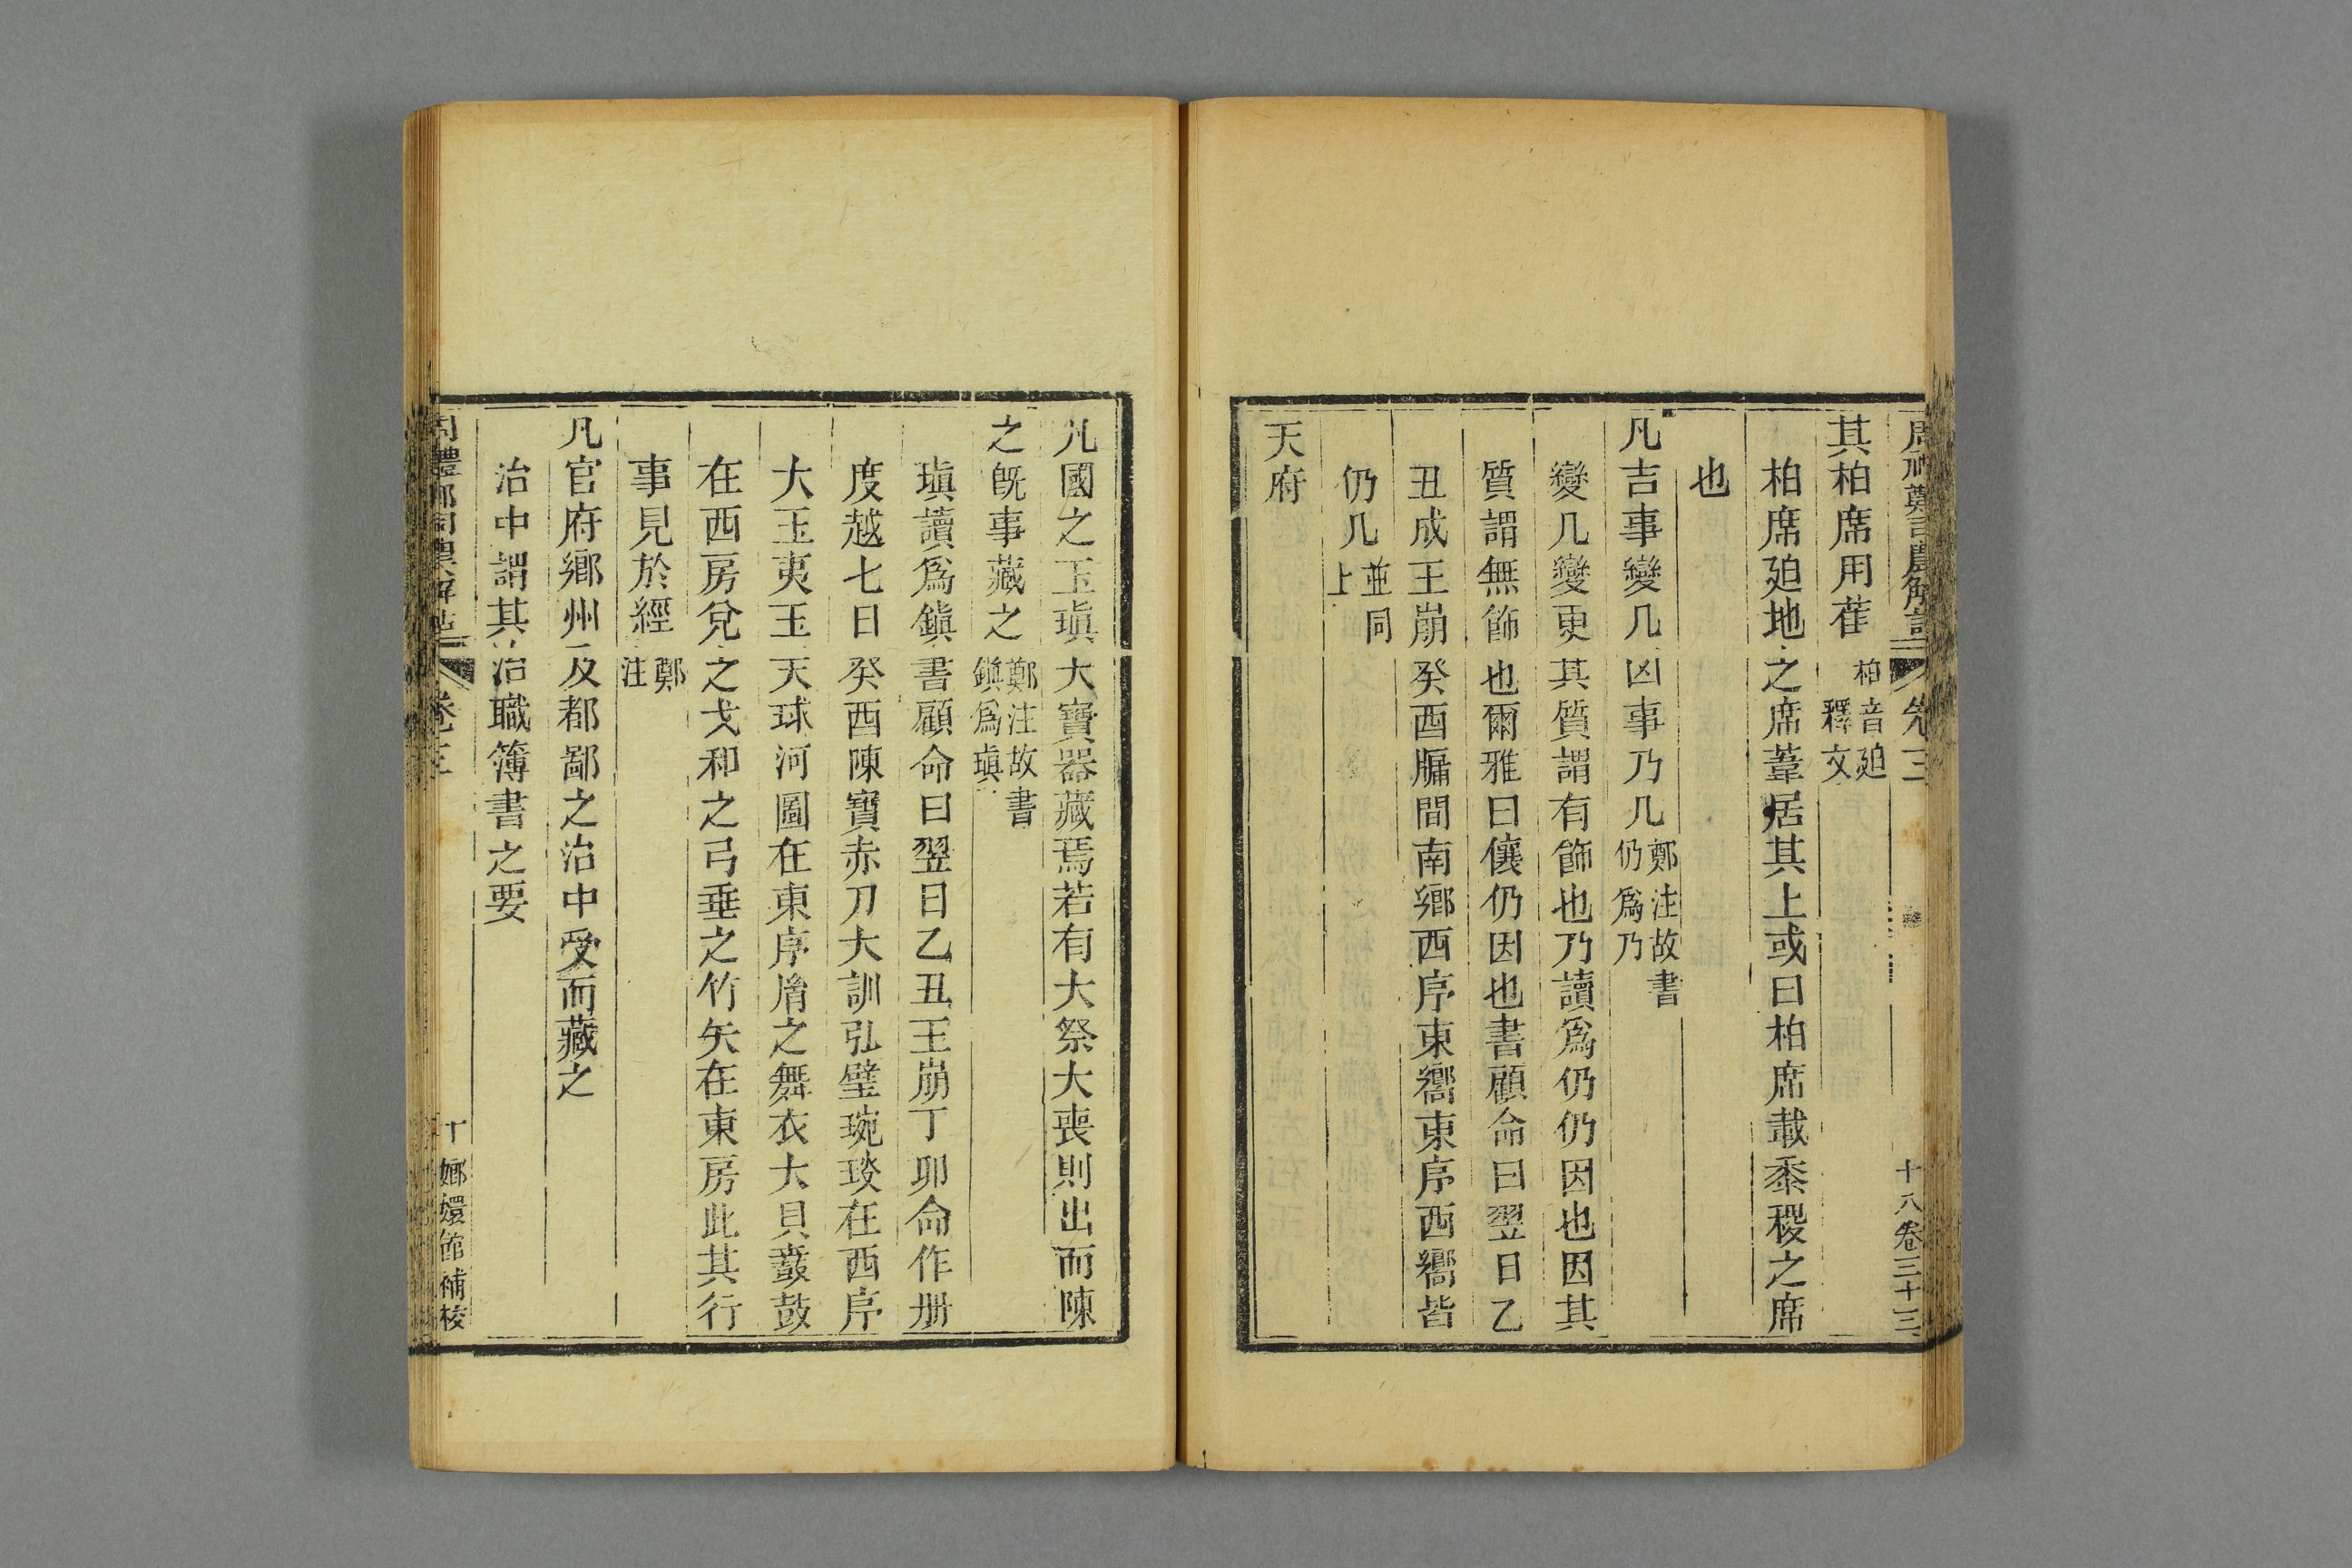 周禮鄭司農解詁 卷三 十八卷三十三
其柏席用萑柏音廹釋文
柏席廹地之席葦居其上或曰柏席載黍稷之席
也
凡吉事變几凶事乃几鄭注故書仍爲乃
變几變更其質謂有飾也乃讀爲仍仍因也因其
質謂無飾也爾雅曰儴仍因也書顧命曰翌日乙
丑成王崩癸酉牖間南鄉西序東嚮東序西嚮皆
仍几並同上
天府
凡國之玉瑱大寶器藏焉若有大祭大喪則出而陳
之旣事藏之鄭注故書鎭爲瑱
瑱讀爲鎭書顧命曰翌日乙丑王崩丁卯命作册
度越七日癸酉陳寶赤刀大訓弘璧琬琰在西序
大玉夷玉天球河圖在東序胤之舞衣大貝鼖鼓
在西房兌之戈和之弓垂之竹矢在東房此其行
事見於經鄭注
凡官府鄉州及都鄙之治中受而藏之
治中謂其治職簿書之要
周禮鄭司農解詁 卷三 十 嫏嬛館補校